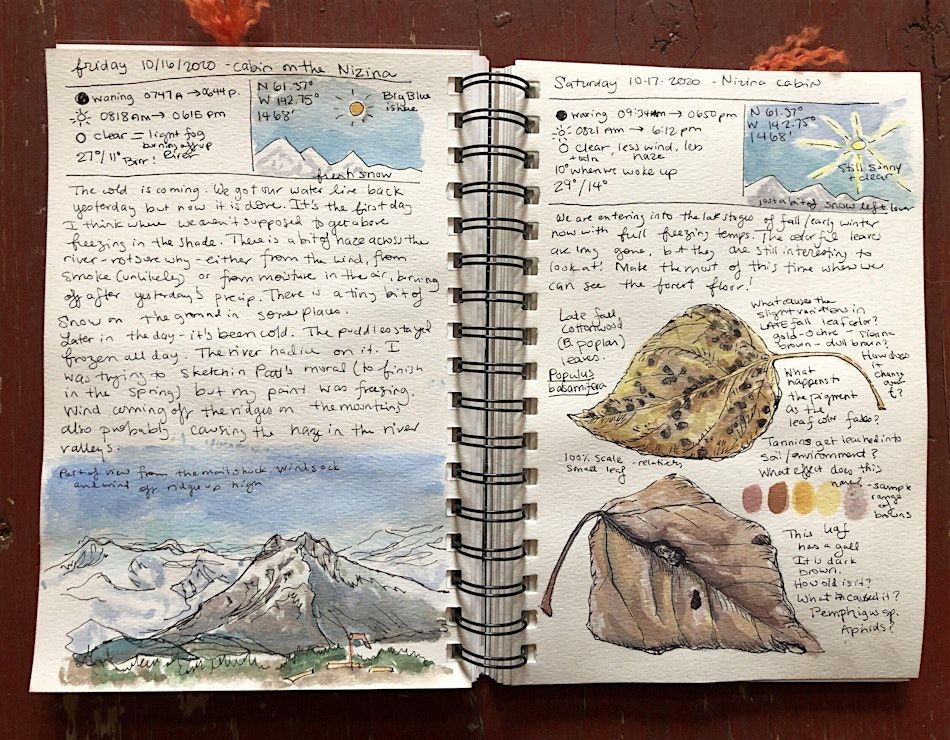 friday 10/16/2020 - Cabin on the Nizina
waning 0747A → 0644 p.
0818 Am → 0615 pm
clear = light fog
burning off up
River
27°/11° Brr!
N 61.37°
W 142.75°
1468'
Big Blue
is here
fresh snow
The cold is coming. We got our water line back
yesterday but now it is done. It's the first day
I think where we aren't supposed to get above
freezing in the shade. There is a bit of haze across the
river - not sure why - either from the wind, from
smoke (unlikely) or from moisture in the air, burning
off after yesterday's precip. There is a tiny bit of
snow on the ground in some places.
Later in the day - it's been cold. The puddles stayed
frozen all day. The river had ice on it. I
was trying to sketch in Patt's mural (to finish
in the spring) but my paint was freezing.
Wind coming off the ridges on the mountains
also probably causing the haze in the river
valleys.
Part of view from the mail shack. Windsock
and wind off ridge up high
Saturday 10.17.2020 - Nizina Cabin
waxing 09:34am → 0650 pm
0821 Am → 6:12 pm
clear, less wind, less
+ calm haze
10° when we woke up
29°/14°
N 61.37°
W 142.75°
1468'
Still sunny
+ clear
just a bit of snow left lower
We are entering into the late stages of fall/early winter
now with full freezing temps. The colorful leaves
are long gone, but they are still interesting to
look at! Make the most of this time when we
can see the forest floor!
Late fall
cottonwood
(B. poplar)
leaves.
Populus
balsamifera
What causes the
slight variations in
LATE fall leaf color?
gold - ochre - sienna
brown - dull brown?
How does
it
change
over
t?
What
happens to
the pigment
as the
leaf color fades?
100% scale
small leaf - relatively
Tannins get leached into
soil/environment?
What effect does this
have?
- sample
range
of
browns
This leaf
has a gall
It is dark
brown.
How old is it?
What caused it?
Pemphigus sp.
Aphids?